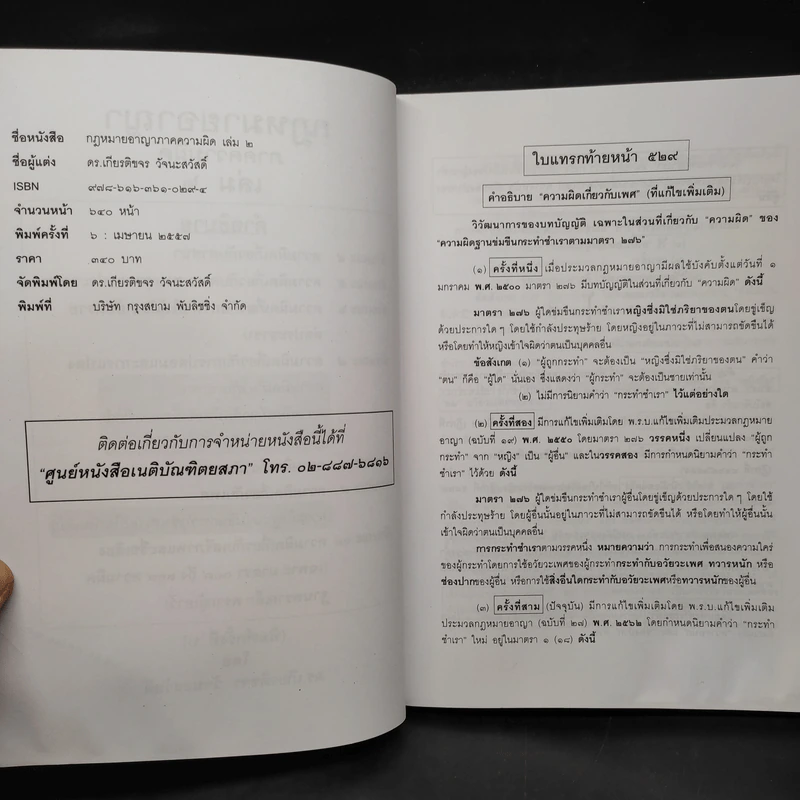 ชื่อหนังสือ กฎหมายอาญาภาคความผิด เล่ม ๒
ชื่อผู้แต่ง ดร.เกียรติขจร วัจนะสวัสดิ์
ISBN ๙๗๘-๖๑๖-๓๖๑-๐๒๙-๔
จำนวนหน้า ๖๔๐ หน้า
พิมพ์ครั้งที่ ๖ : เมษายน ๒๕๕๗
ราคา ๓๔๐ บาท
จัดพิมพ์โดย ดร.เกียรติขจร วัจนะสวัสดิ์
พิมพ์ที่ บริษัท กรุงสยาม พับลิชชิ่ง จำกัด
ติดต่อเกี่ยวกับการจำหน่ายหนังสือนี้ได้ที่
"ศูนย์หนังสือเนติบัณฑิตยสภา" โทร. ๐๒-๘๘๗-๖๘๑๖
ใบแทรกท้ายหน้า ๕๒๙
คำอธิบาย "ความผิดเกี่ยวกับเพศ" (ที่แก้ไขเพิ่มเติม)
วิวัฒนาการของบทบัญญัติ เฉพาะในส่วนที่เกี่ยวกับ "ความผิด" ของ
"ความผิดฐานข่มขืนกระทำชำเราตามมาตรา ๒๗๖"
(๑) ครั้งที่หนึ่ง เมื่อประมวลกฎหมายอาญามีผลใช้บังคับตั้งแต่วันที่ ๑
มกราคม พ.ศ. ๒๕๐๐ มาตรา ๒๗๖ มีบทบัญญัติในส่วนที่เกี่ยวกับ "ความผิด" ดังนี้
มาตรา ๒๗๖ ผู้ใดข่มขืนกระทำชำเราหญิงซึ่งมิใช่ภริยาของตนโดยขู่เข็ญ
ด้วยประการใด ๆ โดยใช้กำลังประทุษร้าย โดยหญิงอยู่ในภาวะที่ไม่สามารถขัดขืนได้
หรือโดยทำให้หญิงเข้าใจผิดว่าตนเป็นบุคคลอื่น
ข้อสังเกต (๑) "ผู้ถูกกระทำ" จะต้องเป็น "หญิงซึ่งมิใช่ภริยาของตน" คำว่า
"ตน" ก็คือ "ผู้ใด" นั่นเอง ซึ่งแสดงว่า "ผู้กระทำ" จะต้องเป็นชายเท่านั้น
(๒) ไม่มีการนิยามคำว่า "กระทำชำเรา" ไว้แต่อย่างใด
(๒) ครั้งที่สอง มีการแก้ไขเพิ่มเติมโดย พ.ร.บ.แก้ไขเพิ่มเติมประมวลกฎหมาย
อาญา (ฉบับที่ ๑๙) พ.ศ. ๒๕๕๐ โดยมาตรา ๒๗๖ วรรคหนึ่ง เปลี่ยนแปลง "ผู้ถูก
กระทำ" จาก "หญิง" เป็น "ผู้อื่น" และในวรรคสอง มีการกำหนดนิยามคำว่า "กระทำ
ชำเรา" ไว้ด้วย ดังนี้
มาตรา ๒๗๖ ผู้ใดข่มขืนกระทำชำเราผู้อื่นโดยขู่เข็ญด้วยประการใด ๆ โดยใช้
กำลังประทุษร้าย โดยผู้อื่นนั้นอยู่ในภาวะที่ไม่สามารถขัดขืนได้ หรือโดยทำให้ผู้อื่นนั้น
เข้าใจผิดว่าตนเป็นบุคคลอื่น
การกระทำชำเราตามวรรคหนึ่ง หมายความว่า การกระทำเพื่อสนองความใคร่
ของผู้กระทำโดยการใช้อวัยวะเพศของผู้กระทำกระทำกับอวัยวะเพศ ทวารหนัก หรือ
ช่องปากของผู้อื่น หรือการใช้สิ่งอื่นใดกระทำกับอวัยวะเพศหรือทวารหนักของผู้อื่น
(๓) ครั้งที่สาม (ปัจจุบัน) มีการแก้ไขเพิ่มเติมโดย พ.ร.บ.แก้ไขเพิ่มเติม
ประมวลกฎหมายอาญา (ฉบับที่ ๒๗) พ.ศ. ๒๕๖๒ โดยกำหนดนิยามคำว่า "กระทำ
ชำเรา" ใหม่ อยู่ในมาตรา ๑ (๑๘) ดังนี้